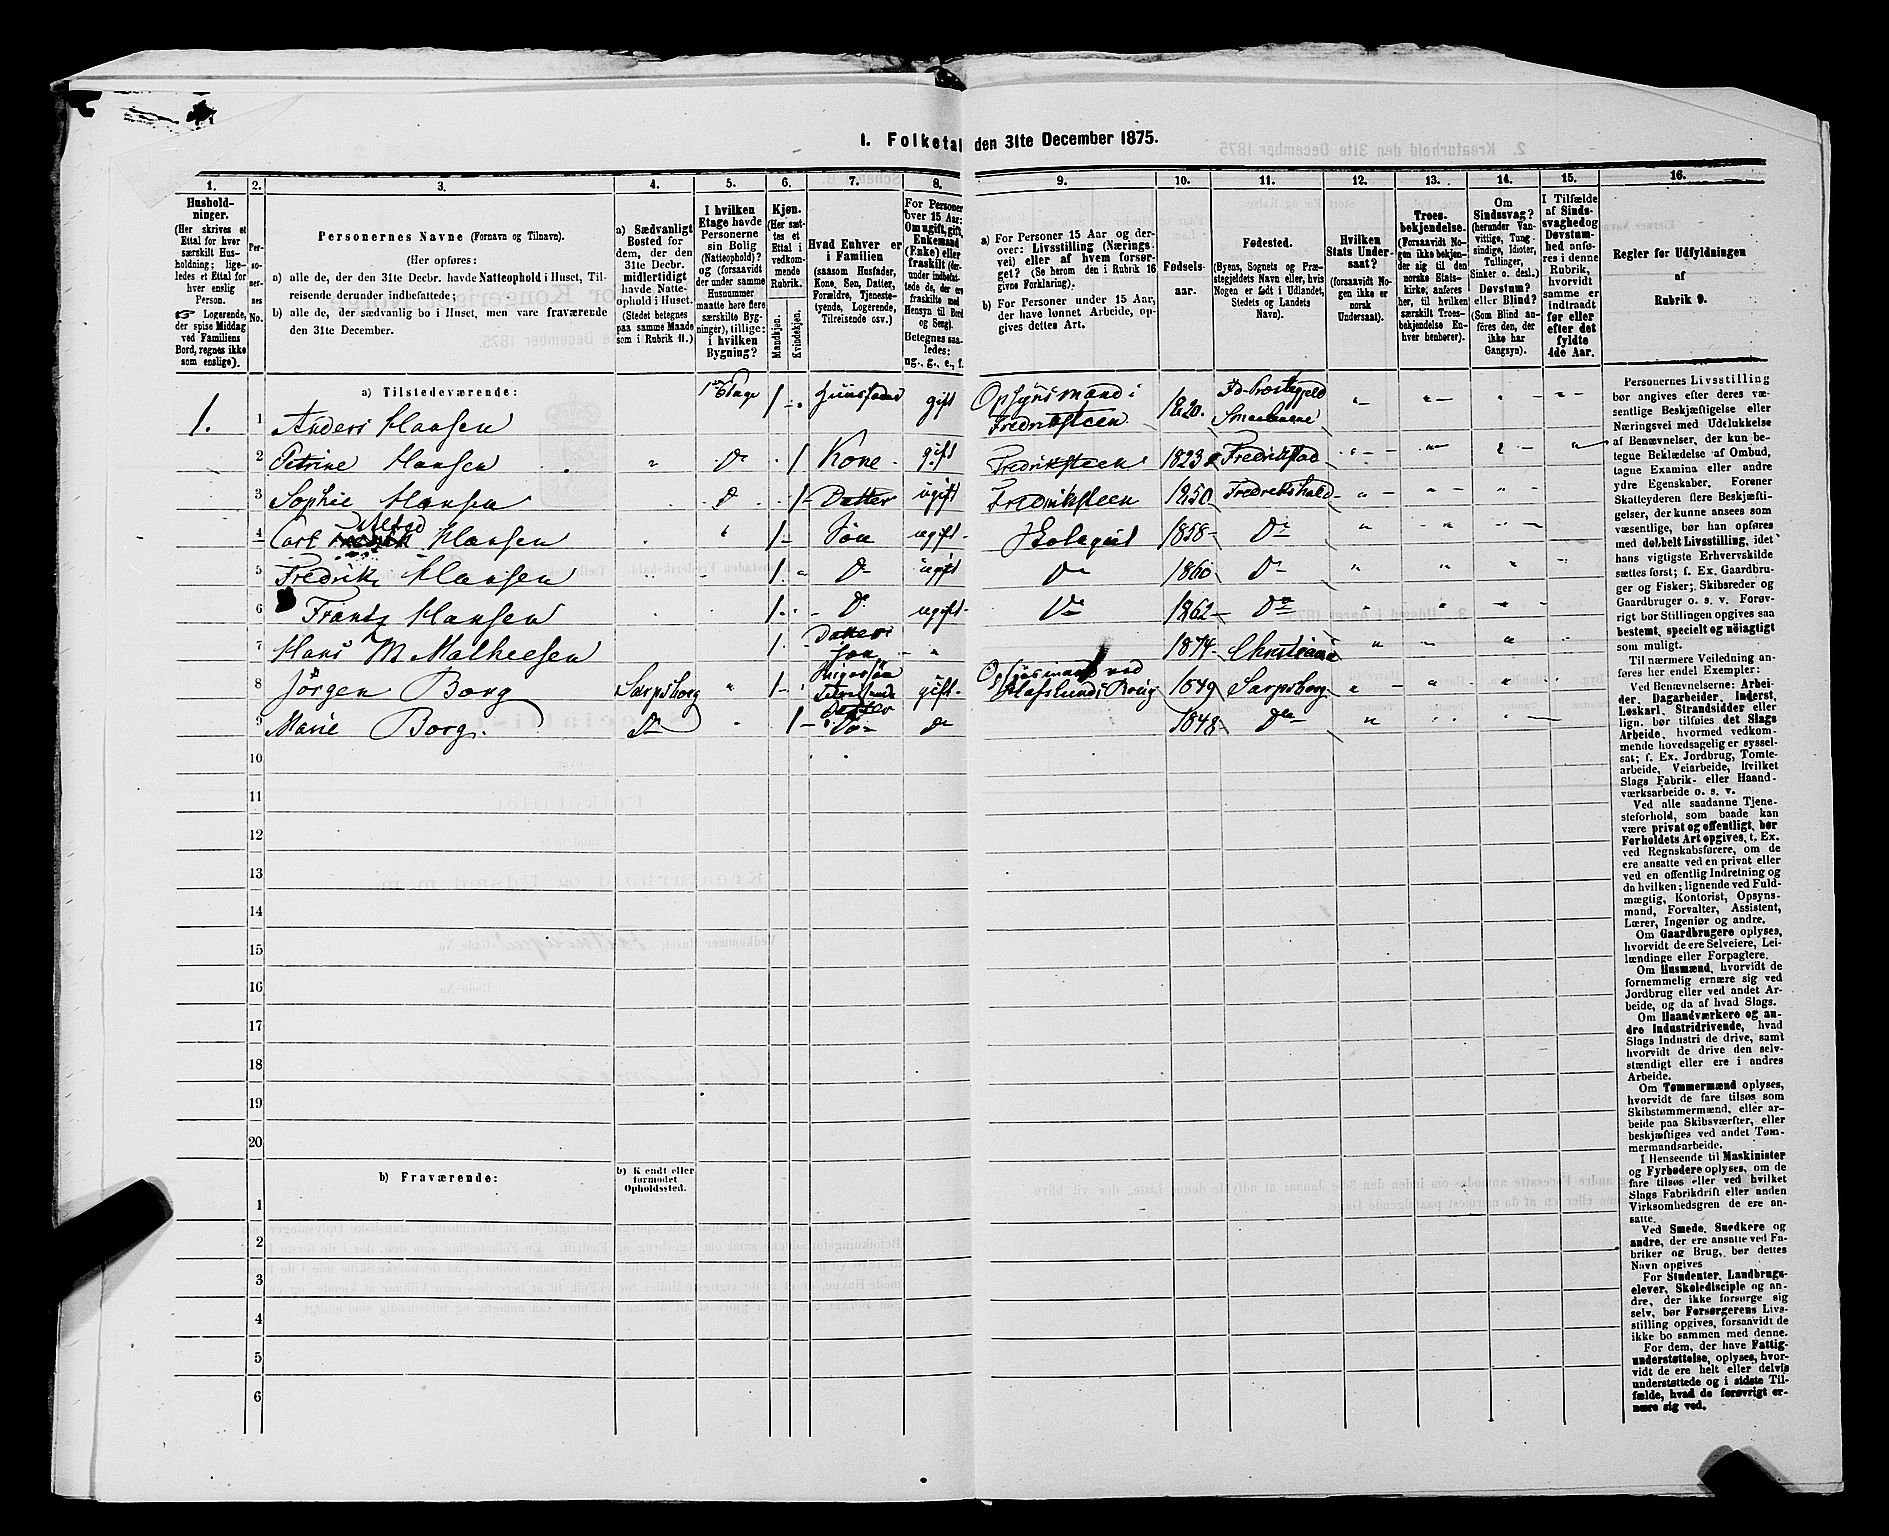 1. Folketal den 31te December 1875.
1. 2. 3. 4. 5. 6. 7. 8. 9. 10. 11. 12. 13. 14. 15. 16.
Hushold-
ninger.
(Her skrives et
Ettal for hver
særskilt Hus-
holdning; lige-
ledes et Ettal for
hver enslig
Person.
☞ Logerende,
der spise Middag
ved Familiens
Bord, regnes ikke
som enslige).
Per-
so-
ner-
nes
No.
Personernes Navne (Fornavn og Tilnavn).
(Her opføres:
a) alle de, der den 31te Decbr. havde Natteophold i Huset, Til-
reisende derunder indbefattede;
b) alle de, der sædvanlig bo i Huset, men vare fraværende
den 31te December.
a) Sædvanligt
Bosted for
dem, der den
31te Decbr.
midlertidigt
havde Natte-
ophold i Huset.
(Stedet betegnes
paa samme Maade
som i Rubrik 11.)
I hvilken
Etage havde
Personerne
sin Bolig
(Natteophold)?
og (forsaavidt
der under samme
Husnummer
maatte høre flere
særskilte Byg-
ninger), tillige:
i hvilken
Bygning?
Kjøn.
(Her sæt-
tes et
Ettal i
vedkom-
mende
Rubrik.
Mandkjøn.
Kvindekjøn.
Hvad Enhver er
i Familien
(saasom Husfader,
Kone, Søn, Datter,
Forældre, Tjeneste-
tyende, Logerende,
Tilreisende osv.)
For Personer
over 15 Aar:
Om ugift, gift,
Enkemand
(Enke) eller
fraskilt (der-
under indbefat-
tede de, der ere
fraskilte med
Hensyn til Bord
og Seng).
Betegnes saa-
ledes:
ug., g., e., f.
a) For Personer 15 Aar og der-
over: Livsstilling (Nærings-
vei) eller af hvem forsør-
get? (Se herom den i Rubrik 16
givne Forklaring).
b) For Personer under 15 Aar,
der have lønnet Arbeide, op-
gives dettes Art.
Fødsels-
aar.
Fødested.
(Byens, Sognets og Præ-
stegjeldets Navn eller, hvis
Nogen er født i Udlandet,
Stedets og Landets
Navn).
Hvilken
Stats Under-
saat?
(forsaavidt No-
gen ikke er
norsk
Undersaat).
Troes-
bekjendelse.
(Forsaavidt No-
gen ikke bekjen-
der sig til den
norske Stats-
kirke, anføres
her, til hvilken
særskilt Troes-
bekjendelse En-
hver henhører).
Om
Sindssvag?
(herunder Van-
vittige, Tung-
sindige, Idioter,
Tullinger,
Sinker o. desl.)
Døvstum?
eller Blind?
(Som Blind an-
føres den, der
ikke har
Gangsyn).
I Tilfælde
af Sinds-
svaghed og
Døvstum-
hed anfø-
res i denne
Rubrik,
hvorvidt
samme er
indtraadt
før eller
efter det
fyldte
4de Aar.
Regler for Udfyldningen
af
Rubrik 9.
a) Tilstedeværende:
1. 1 Anders Hansen 1ste Etage 1 Huusfader gift Opsynsmand i Fredriksteen 1820. Id Præstegjeld
2 Petrine Hansen Do 1 Kone gift Fredriksteen 1823 Fredrikstad
3 Sophie Hansen Do 1 Datter ugift Fredriksteen 1850 Fredrikshald
4 Carl Alfred Hansen 1 Søn ugift Skolegut 1858 Do
5 Fredrik Hansen 1 Do ugift Do 1860 Do
6 Frantz Hansen 1 Do ugift Do 1862 Do
7 Hans M Matheesen 1 Datters Søn 1874 Christiania
8 Jörgen Borg Sarpsborg 1 gift Opsynsmand ved Hafslunds Brug 1849 Sarpsborg
9 Marie Borg. Do 1 Datter Do Do 1848 Do
10
11
12
13
14
15
16
17
18
19
20
b) Fraværende:
b) Kjendt eller
formodet
Opholdssted.
1
2
3
4
5
6
Personernes Livsstilling
bør angives efter deres væ-
sentlige Beskjæftigelse eller
Næringsvei med Udelukkelse
af Benævnelser, der kun be-
tegne Beklædelse af Ombud,
tagne Examina eller andre
ydre Egenskaber. Forener
Skatteyderen flere Beskjæfti-
gelser, der kunne ansees som
væsentlige, bør han opføres
med dobbelt Livsstilling, idet
hans vigtigste Erhvervskilde
sættes først; f. Ex. Gaardbru-
ger og Fisker; Skibsreder og
Gaardbruger o. s. v. Forøv-
rigt bør Stillingen opgives saa
bestemt, specielt og nöiagtigt
som muligt.
Til nærmere Veiledning an-
føres her Exempler:
Ved Benævnelserne: Arbei-
der, Dagarbeider, Inderst,
Løskarl, Strandsidder eller
lign. bør tilføies det Slags
Arbeide, hvormed vedkom-
mende hovedsagelig er syssel-
sat; f. Ex. Jordbrug, Tomte-
arbeide, Veiarbeide, hvilket
Slags Fabrik- eller Haand-
værksarbeide o. s. v.
Ved alle saadanne Tjene-
steforhold, som baade kan
være privat og offentligt, bør
Forholdets Art opgives, t. Ex.
ved Regnskabsførere, om de
ere ansatte ved en privat eller
ved en offentlig Indretning og
da hvilken; lignende ved Fuld-
mægtig, Kontorist, Opsyns-
mand, Forvalter, Assistent,
Lærer, Ingeniør og andre.
Om Gaardbrugere oplyses,
hvorvidt de ere Selveiere, Lei-
lændinge eller Forpagtere.
Om Husmænd, hvorvidt de
fornemmelig ernære sig ved
Jordbrug eller ved andet Ar-
beide, og da af hvad Slags.
Om Haandværkere og an-
dre Industridrivende, hvad
Slags Industri de drive, samt
hvorvidt de drive den selv-
stændigt eller ere i andres
Arbeide.
Om Tømmermænd oplyses,
hvorvidt de fare tilsøs som
Skibstømmermænd, eller ar-
beide paa Skibsværfter, eller
beskjæftiges ved andet Tøm-
mermandsarbeide.
I Henseende til Maskinister
og Fyrbødere oplyses, om de
fare tilsøs eller ved hvilket
Slags Fabrikdrift eller anden
Virksomhedsgren de ere an-
satte.
Ved Smede, Snedkere og
andre, der ere ansatte ved Fa-
briker og Brug, bør dettes
Navn opgives
For Studenter, Landbrugs-
elever, Skoledisciple og an-
dre, der ikke forsørge sig
selv, bør Forsørgerens Livs-
stilling opgives, forsaavidt de
ikke bo sammen med denne.
For dem, der have Fattig-
understøttelse, oplyses, hvor-
vidt de ere helt eller delvis
understøttede og i sidste Til-
fælde, hvad de forøvrigt er-
nære sig ved.